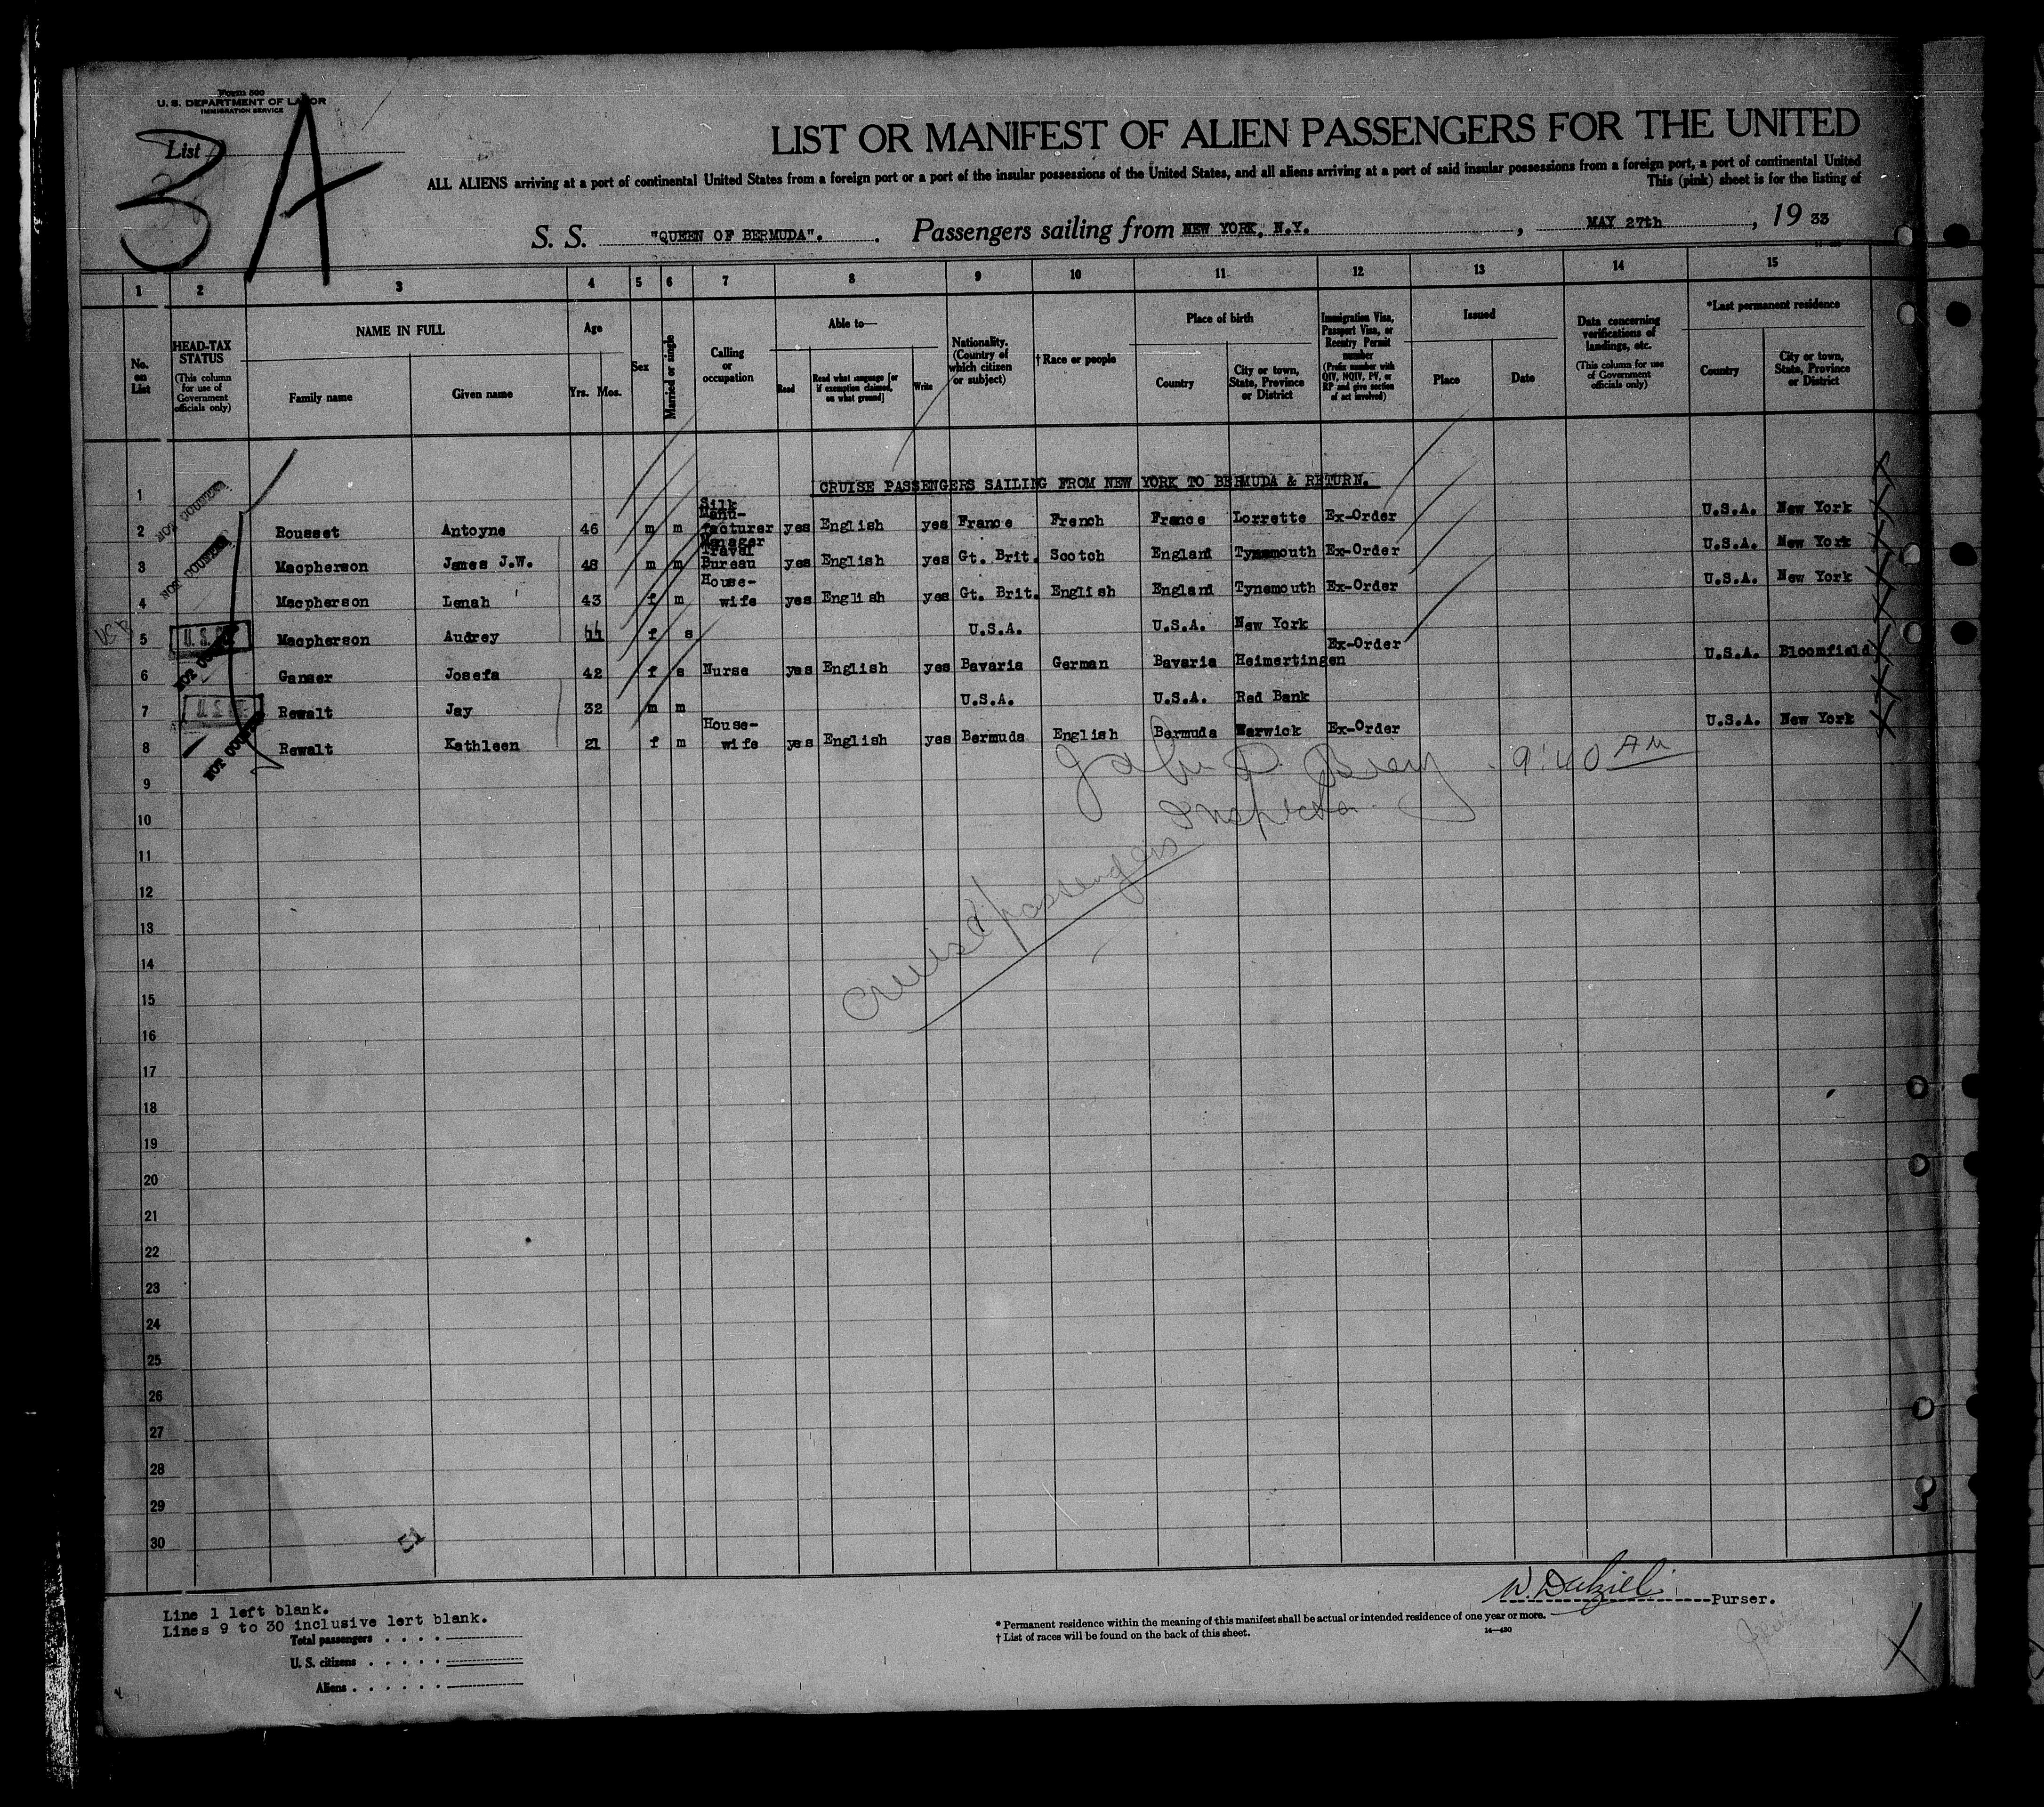 Form 500
U. S. DEPARTMENT OF LABOR
IMMIGRATION SERVICE
List
3 A
LIST OR MANIFEST OF ALIEN PASSENGERS FOR THE UNITED
ALL ALIENS arriving at a port of continental United States from a foreign port or a port of the insular possessions of the United States, and all aliens arriving at a port of said insular possessions from a foreign port, a port of continental United
This (pink) sheet is for the listing of
S. S. "QUEEN OF BERMUDA". Passengers sailing from NEW YORK, N.Y. , MAY 27th , 19 33
1 2 3 4 5 6 7 8 9 10 11 12 13 14 15
No. on List
HEAD-TAX STATUS (This column for use of Government officials only)
NAME IN FULL
Family name Given name
Age
Yrs. Mos.
Sex
Married or single
Calling or occupation
Able to—
Read Read what language [or if exemption claimed, on what ground] Write
Nationality. (Country of which citizen or subject)
†Race or people
Place of birth
Country City or town, State, Province or District
Immigration Visa, Passport Visa, or Reentry Permit number (Prefix number with QIV, NQIV, PV, or RP and give section of act involved)
Issued
Place Date
Data concerning verifications of landings, etc. (This column for use of Government officials only)
*Last permanent residence
Country City or town, State, Province or District
CRUISE PASSENGERS SAILING FROM NEW YORK TO BERMUDA & RETURN.
1
2 NOT COUNTED Rousset Antoyne 46 m m Silk Manu-facturer yes English yes France French France Lorrette Ex-Order U.S.A. New York
3 NOT COUNTED Macpherson James J.W. 48 m m Manager Travel Bureau yes English yes Gt. Brit. Scotch England Tynemouth Ex-Order U.S.A. New York
4 Macpherson Lenah 43 f m House-wife yes English yes Gt. Brit. English England Tynemouth Ex-Order U.S.A. New York
5 Macpherson Audrey 11 f s U.S.A. U.S.A. New York
6 NOT COUNTED Ganser Josefa 42 f s Nurse yes English yes Bavaria German Bavaria Heimertingen Ex-Order U.S.A. Bloomfield
7 Rewalt Jay 32 m m U.S.A. U.S.A. Red Bank
8 NOT COUNTED Rewalt Kathleen 21 f m House-wife yes English yes Bermuda English Bermuda Warwick Ex-Order U.S.A. New York
9:40 AM
Inspector
Cruise passengers
9
10
11
12
13
14
15
16
17
18
19
20
21
22
23
24
25
26
27
28
29
30
51
W. Dalziel Purser.
Line 1 left blank.
Lines 9 to 30 inclusive lert blank.
Total passengers . . . .
U. S. citizens . . . . .
Aliens . . . . . .
* Permanent residence within the meaning of this manifest shall be actual or intended residence of one year or more.
† List of races will be found on the back of this sheet.
14—430